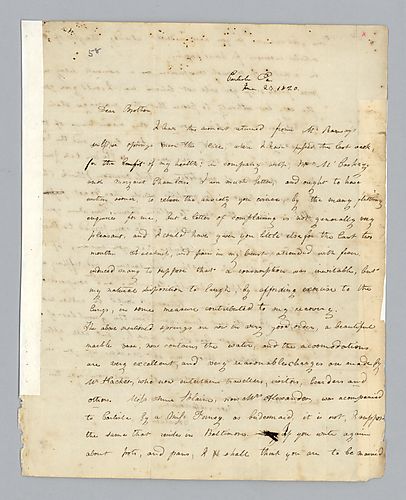 58
Carlisle Pa
June 20, 1820.
Dear Brother
I have this moment returned from Mr Ramsay
sulphur springs over the river, where I have passed the last week,
for the benefit of my health: in company with
and Margaret Chambers. I am much better, and ought to have
written sooner, to relieve the anxiety you express, by the many
enquiries for me; but a letter of complaining is not generally very
pleasant, and I could have given you little else for the last two
months. A cough, and pain in my breast attended with fever
induced many to suppose that a consumption was inevitable, but
my natural disposition to laugh, by affording exercise to the
lungs, in some measure contributed to my recovery.
The above mentioned springs are now in very good order, a beautiful
marble vase now contains the water, and the accomodations
are very excellent, and very reasonable charges are made by
Mr Hackett, who now entertains travellers, visitors, boarders and
others. Miss Anne Blaine, now Mrs Alexander, was accompanied
to Carlisle by a Miss as bridesmaid it is not, I suppose
the same that resides in Baltimore. If you write again
about pots, and pans, I shall think you are to be married